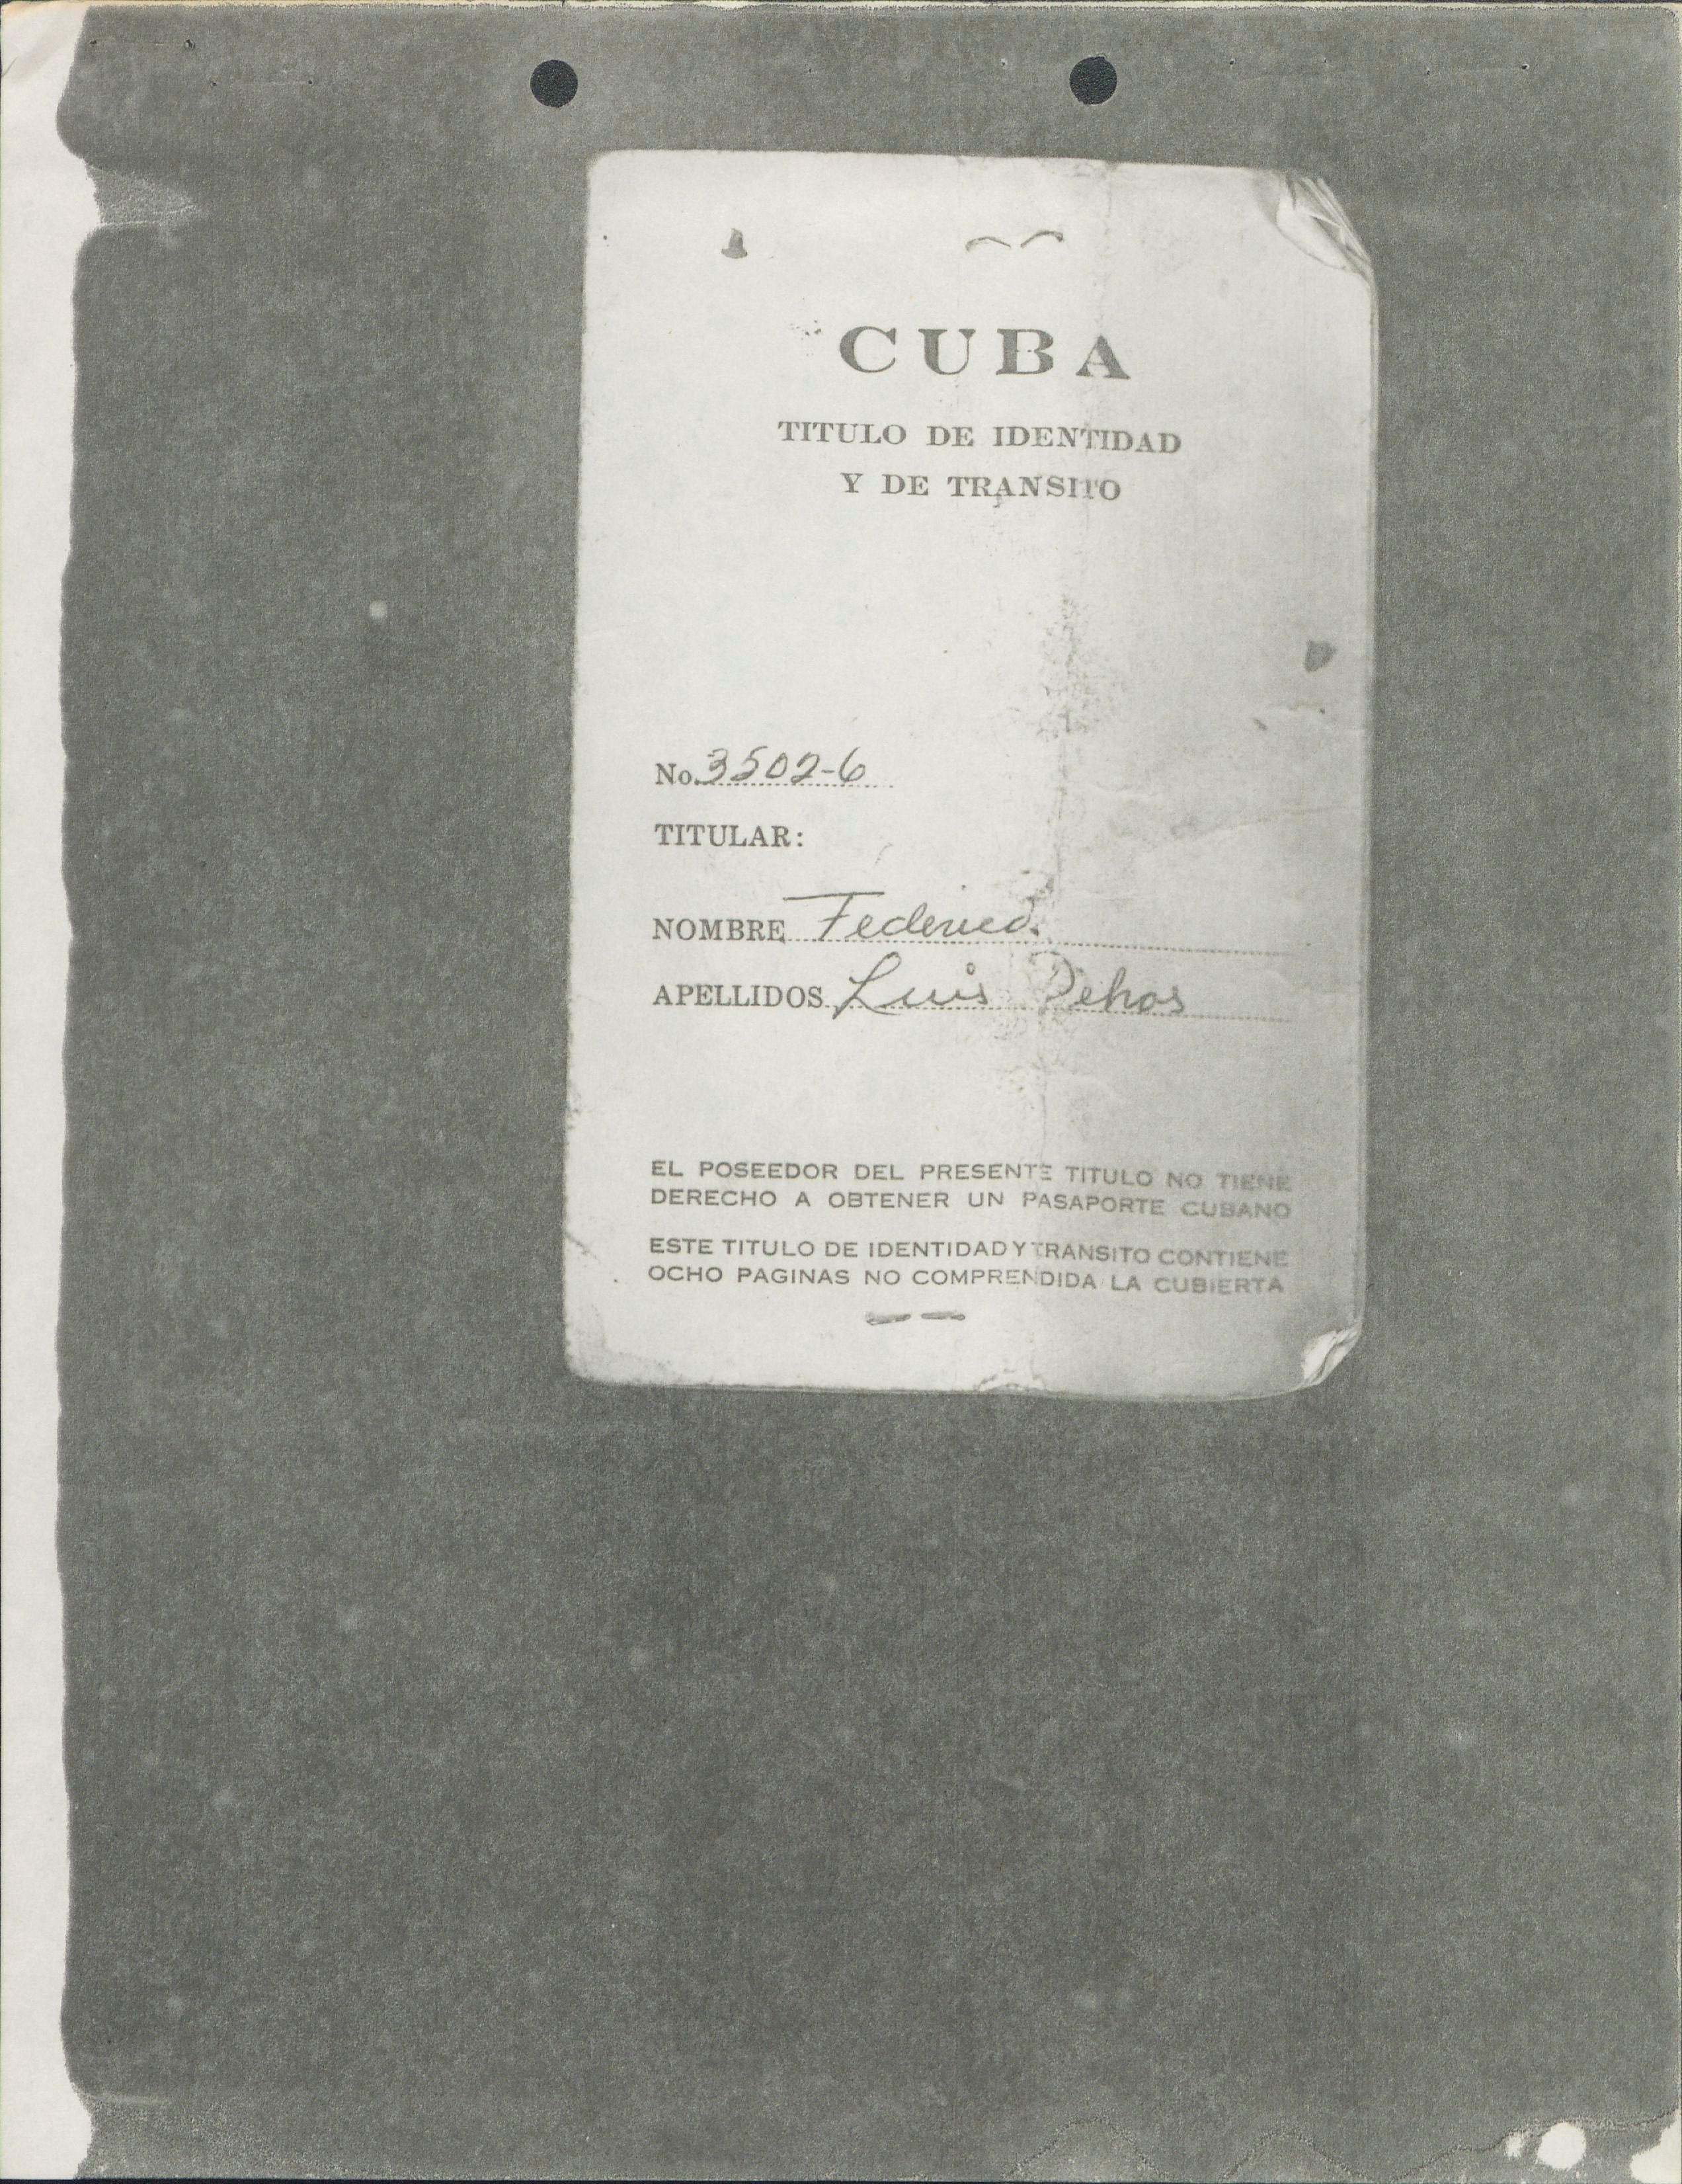 CUBA
TITULO DE IDENTIDAD
Y DE TRANSITO
No. 3502-6
TITULAR:
NOMBRE Federico.
APELLIDOS Luis Dehos
EL POSEEDOR DEL PRESENTE TITULO NO TIENE
DERECHO A OBTENER UN PASAPORTE CUBANO
ESTE TITULO DE IDENTIDAD Y TRANSITO CONTIENE
OCHO PAGINAS NO COMPRENDIDA LA CUBIERTA